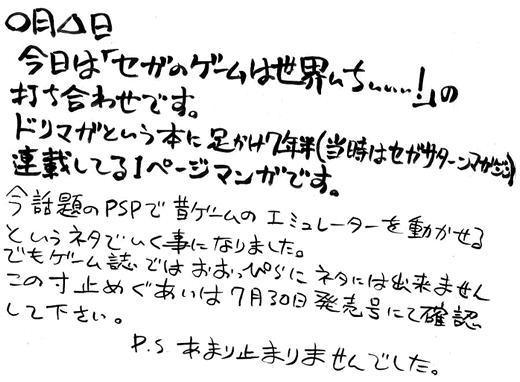 ○月△日
今日は「セガのゲームは世界いちぃぃぃ…！」の
打ち合わせです。
ドリマガという本に足かけ7年半(当時はセガサターンマガジン)
連載してる1ページマンガです。
今話題のPSPで昔ゲームのエミュレーターを動かせる
というネタでいく事になりました。
でもゲーム誌ではおおっぴらにネタには出来ません
この寸止めぐあいは7月30日発売号にて確認
して下さい。
P.S あまり止まりませんでした。